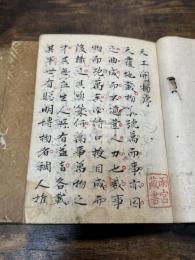 天工開物序
天覆地載物數號萬而事亦因
之曲成而不遺豈人力也哉事
物而既萬矣必待口授目成而
後識之其與幾何萬事萬物之
中其無益生人與有益者各載
其半世有聰明博物者稠人推
雨宮
藏書